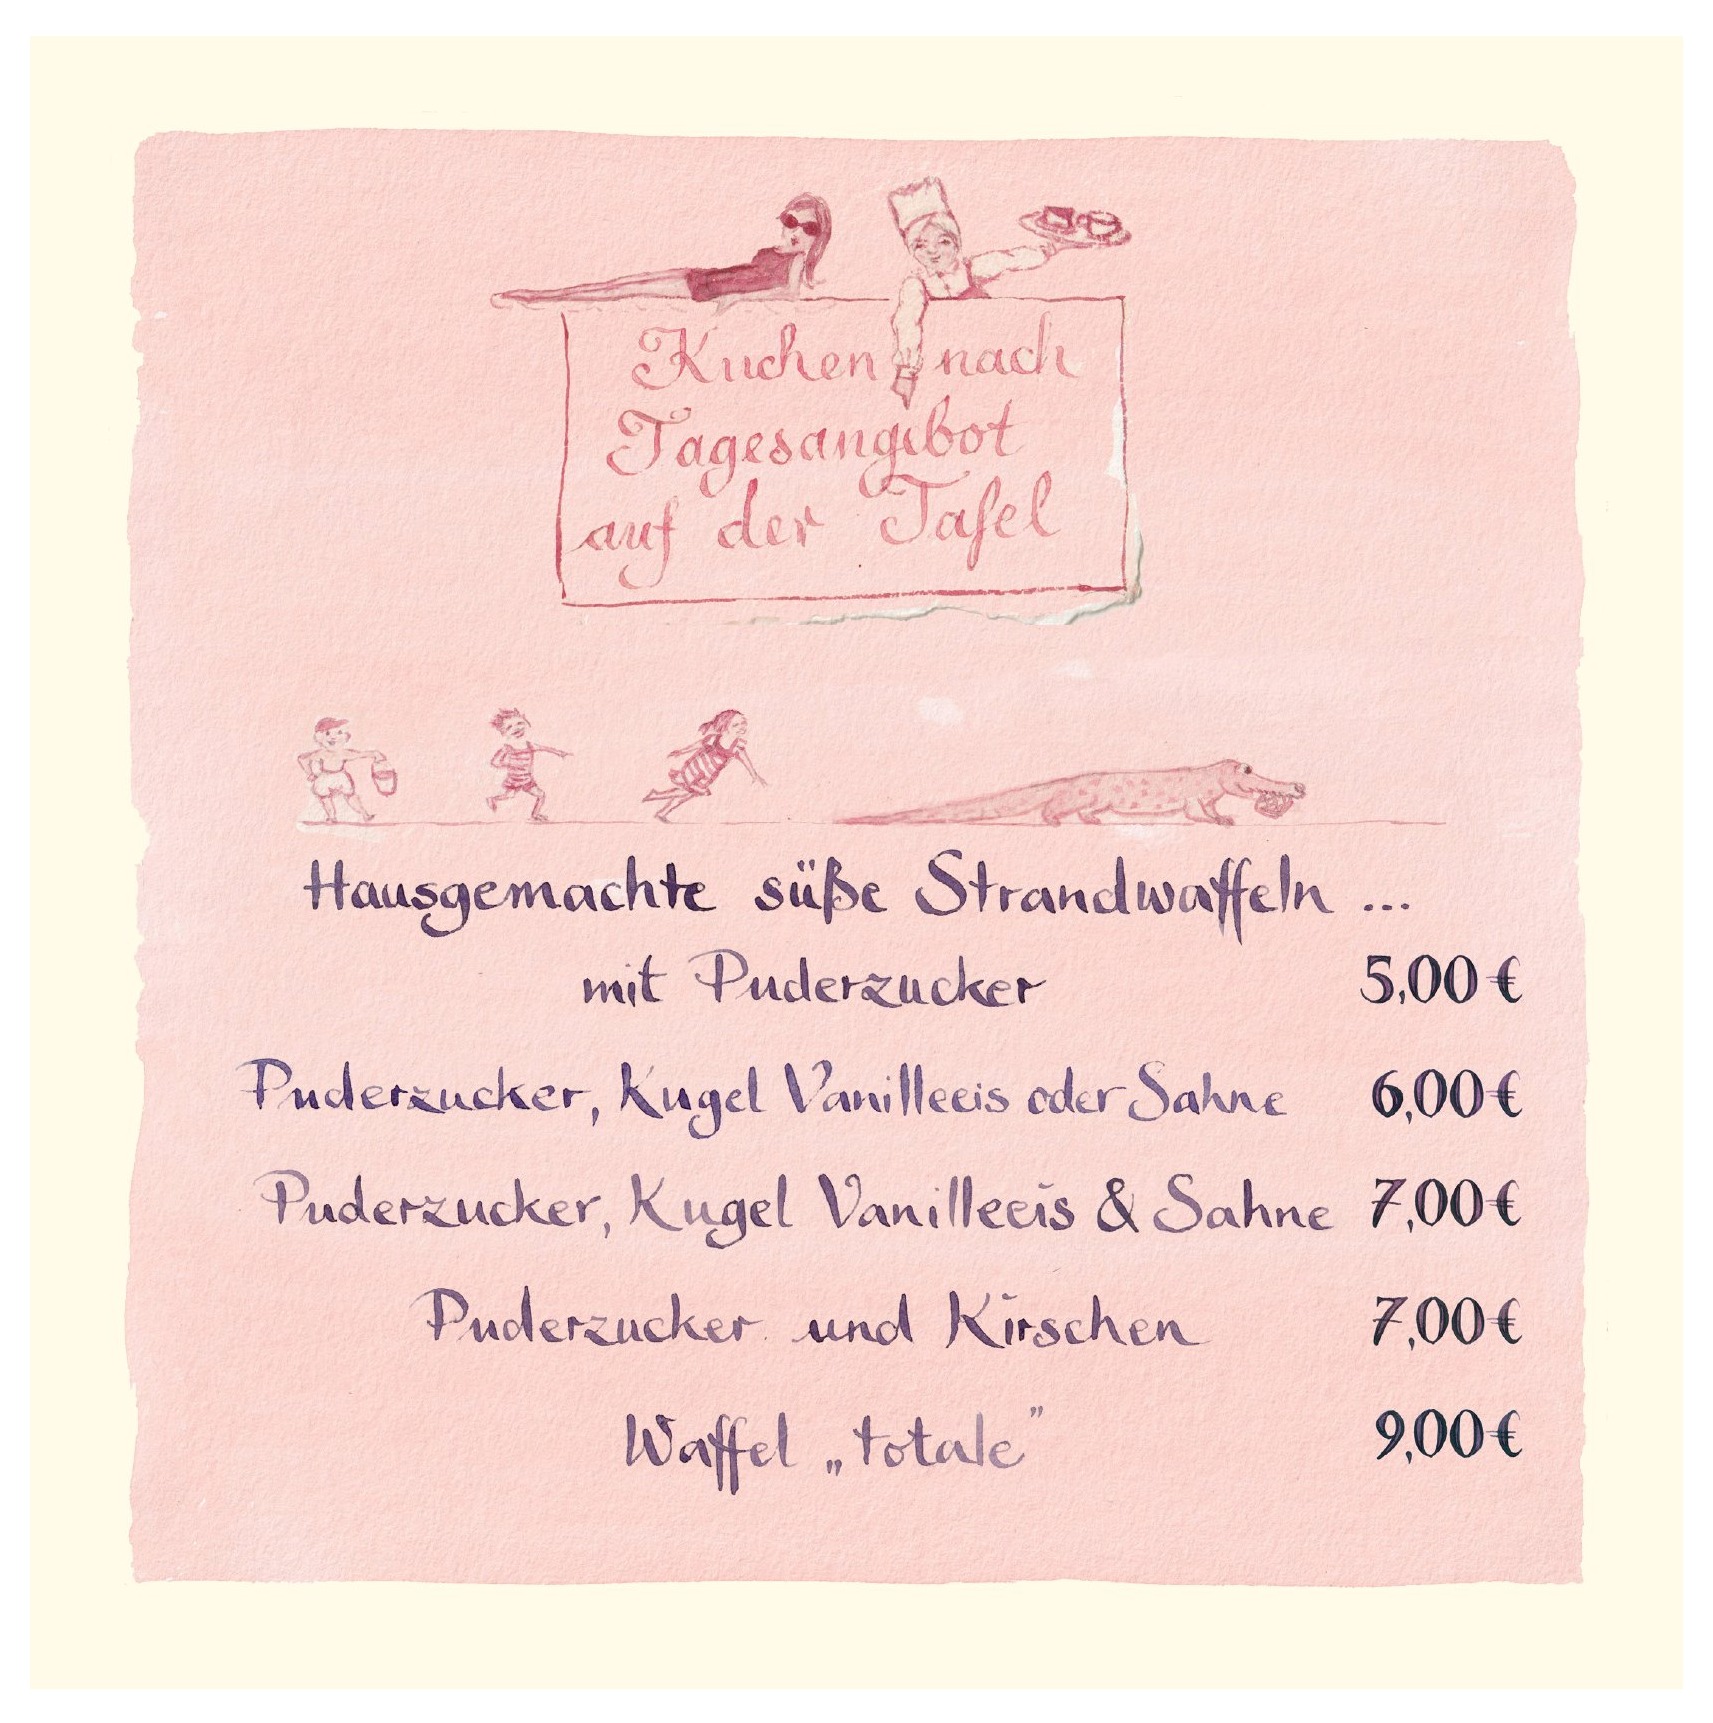 Kuchen nach
Tagesangebot
auf der Tafel
Hausgemachte süße Strandwaffeln ...
mit Puderzucker 5,00 €
Puderzucker, Kugel Vanilleeis oder Sahne 6,00 €
Puderzucker, Kugel Vanilleeis & Sahne 7,00 €
Puderzucker und Kirschen 7,00 €
Waffel „totale” 9,00 €